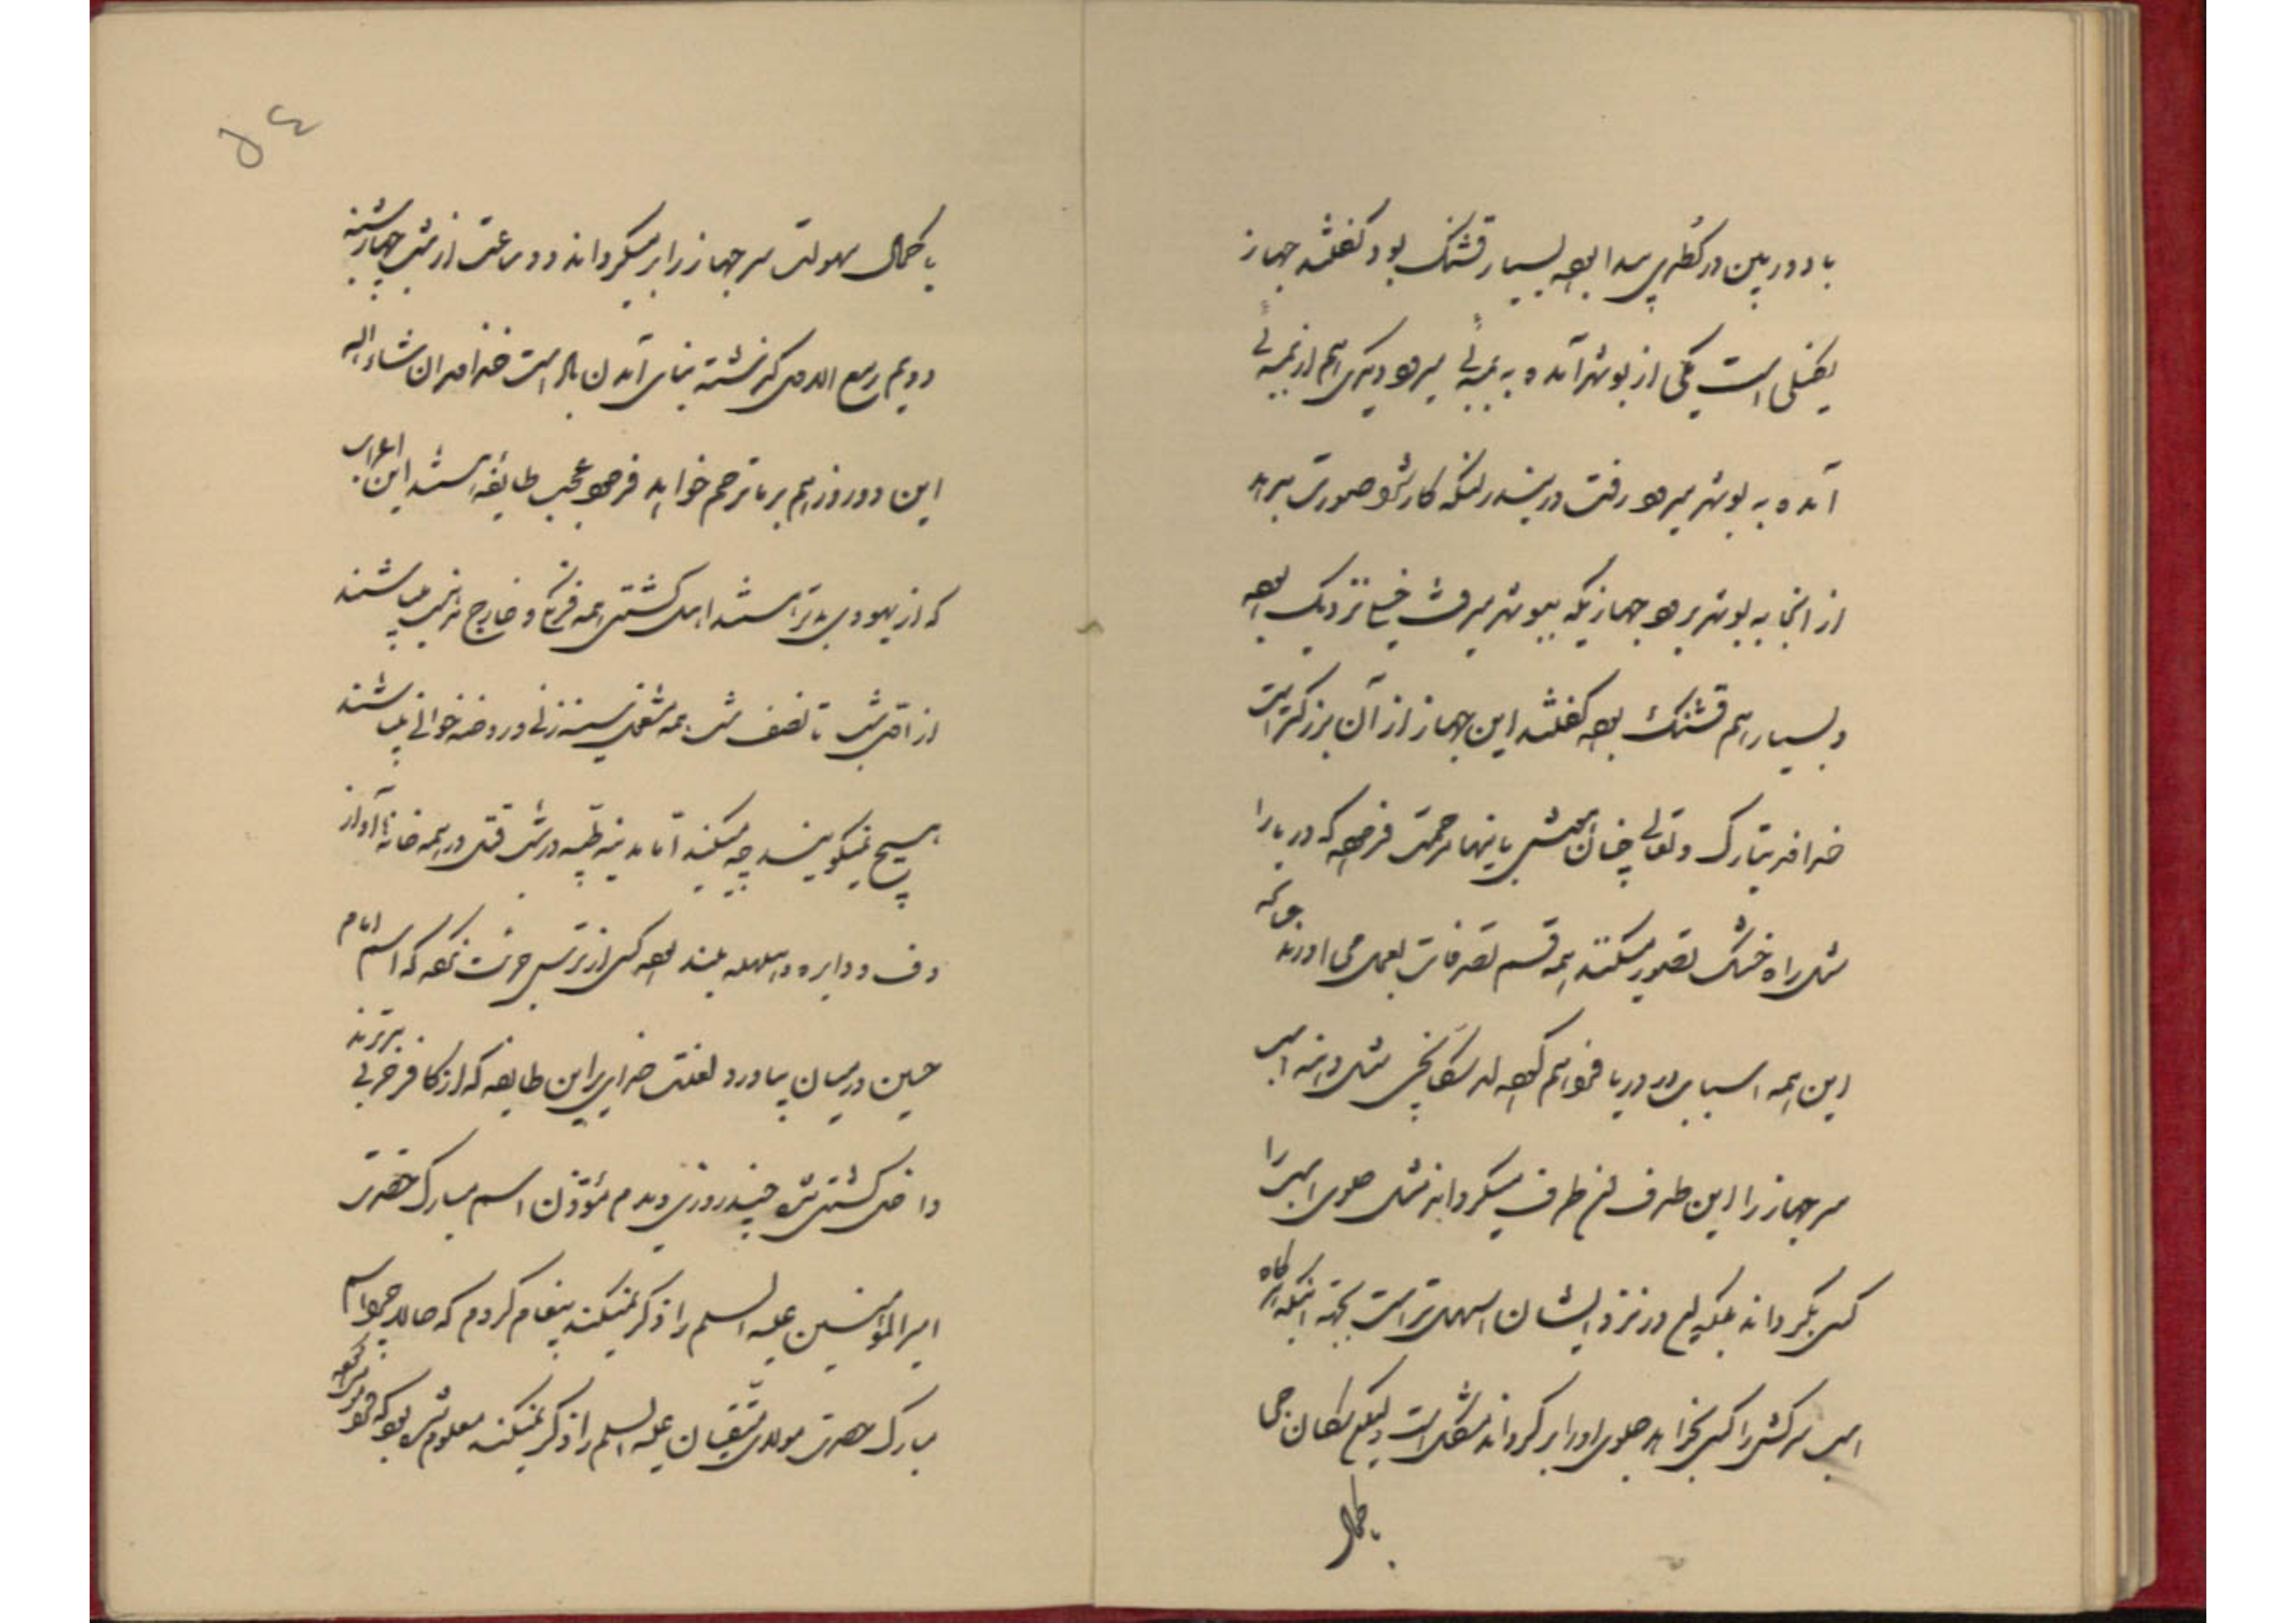 با دوربین در کمال پیدا بود بسیار قشنگ بود گفتند جهاز
یکی از بوشهر آمده به بمبئی میرود دیگری هم از بمبئی
آمده به بوشهر میرود رفت در بندر لنگه کارش صورت بدهد
از آنجا به بوشهر برود جهازیکه ببوشهر میرفت خیلی نزدیک بود
و بسیار هم قشنگ بود گفتند این جهاز از آن بزرگتر است
خداوند تبارک و تعالی چنان باینها مرحمت فرموده که دریا را
مثل راه خشک تصور میکنند همه قسم تصرفات بعمل می اورند
این همه اسباب در دریا فراهم کرده اند مثل اسب
سر جهاز را این طرف آن طرف میگردانند مثل جلوی اسب را
کسی بگرداند بلکه در نزد ایشان اسهل تر است بجهة اینکه
اسب سرکش را کسی بخواهد جلوی او را برگرداند مشکل است
با کمال
۵٤
با کمال سهولت سر جهاز را بر میگردانند دو ساعت از شب چهارشنبه
دویم ربیع الاول گذشته بنای آمدن باد است خداوند ان شاء الله
این دو روز هم بر ما ترحم خواهد فرمود عجب طایفه هستند این اعراب
که از یهودی بدتر هستند اهل کشتی همه فرنگی و خارج مذهب میباشند
از اول شب تا نصف شب همه مشغول سینه زنی و روضه خوانی میباشند
هیچ نمیگویند چه میکنید اما مدینه طیبه در شب قتل در همه خانها آواز
دف و دایره و هلهله بلند بود کسی از ترس جرئت نکرد که اسم امام
حسین در میان بیاورد لعنت خدای بر این طایفه که از کافر حربی بدترند
داخل کشتی شد چند روزی دیدم مؤذن اسم مبارک حضرت
امیرالمؤمنین علیه السلم را ذکر نمیکند پیغام کردم که حالا چرا اسم
مبارک حضرت مولای متقیان علیه السلم را ذکر نمیکند معلوم شد